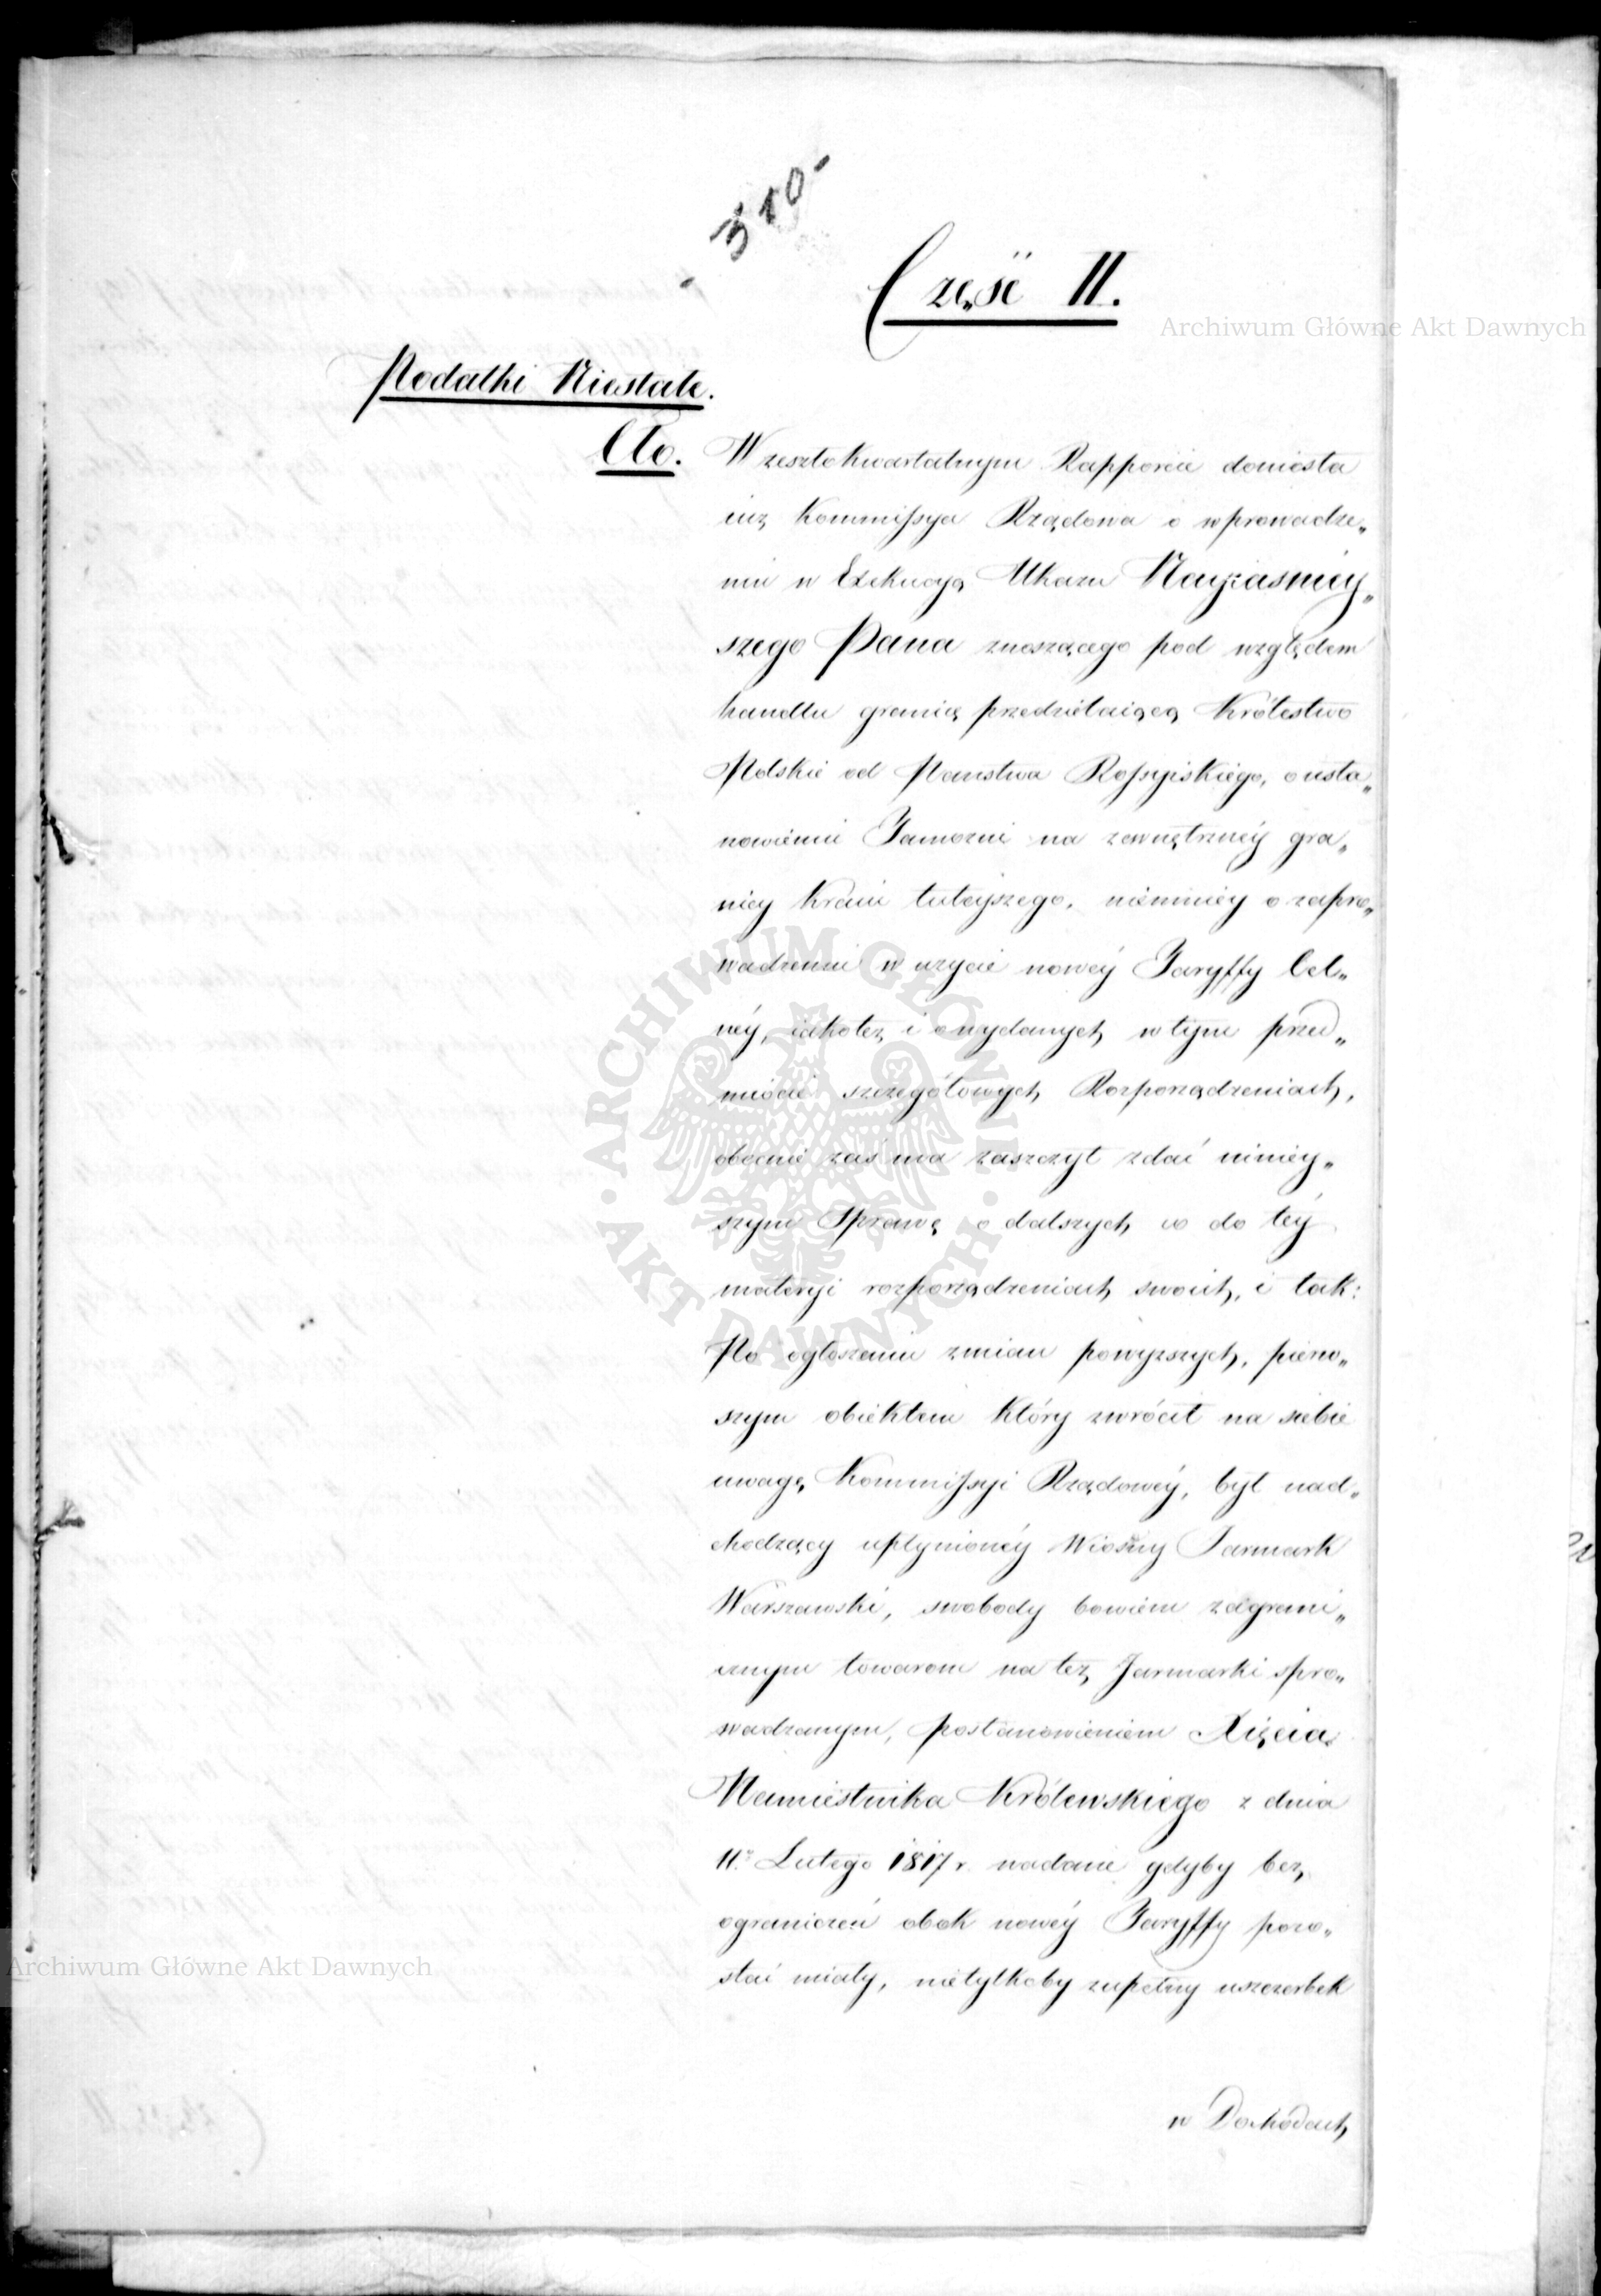 - 310 -
Część II.
Archiwum Główne Akt Dawnych
Podatki Niestałe.
Cło.
W zeszłokwartalnym Rapporcie doniosła
iuż Kommissya Rządowa o wprowadze„
niu w Exekucyą Ukazu Nayiaśniéy„
szego Pana znoszącego pod względem
handlu granicę przedzielaiącą Królestwo
Polskie od Panstwa Rossyiskiego, o usta„
nowieniu Tamożni na zewnętrznéy gra„
nicy Kraiu tuteyszego, niemniéy o zapro„
wadzeniu w użycie nowéy Taryffy Cel„
néy, iakoteż i o wydanych w tym przed„
miocie szczegółowych Rozporządzeniach,
obecnie zaś ma zaszczyt zdać niniéy„
szym Sprawę o dalszych co do téy
materyi rozporządzeniach swoich, i tak:
Po ogłoszeniu zmian powyższych, pierw„
szym obiektem który zwrócił na siebie
uwagę Kommissyi Rządowéy, był nad„
chodzący upłynionéy Wiosny Jarmark
Warszawski, swobody bowiem zagrani„
cznym towarom na też Jarmarki spro„
wadzanym, postanowieniem Xięcia
Namiestnika Królewskiego z dnia
11. Lutego 1817 r. nadane gdyby bez
ograniczeń obok nowéy Taryffy pozo„
stać miały, nietylkoby zupełny uszczerbek
w Dochodach
ARCHIWUM GŁÓWNE AKT DAWNYCH
Archiwum Główne Akt Dawnych